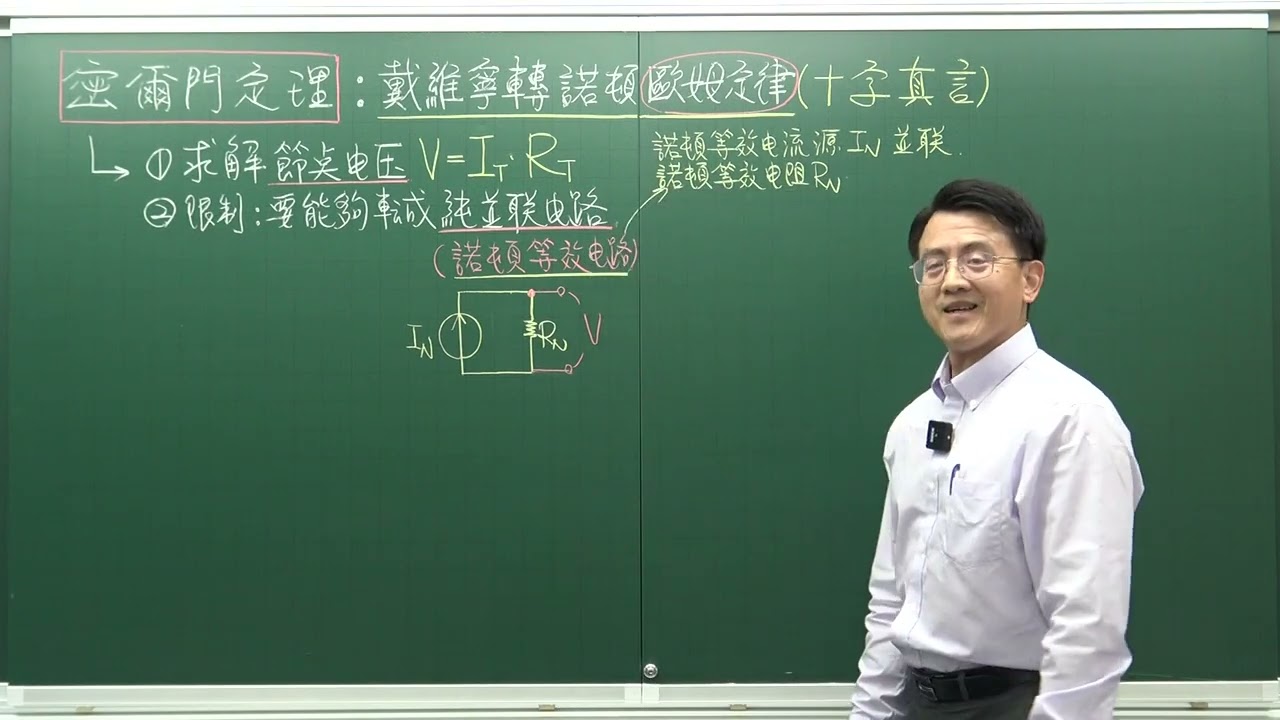 密爾門定理:戴維寧轉諾頓歐姆定律(十字真言)
①求解節点电压 V=I_T·R_T
②限制:要能夠転成純並联电路
(諾頓等效电路)
諾頓等效电流源 I_N 並联
諾頓等效电阻 R_N
I_N
R_N
V